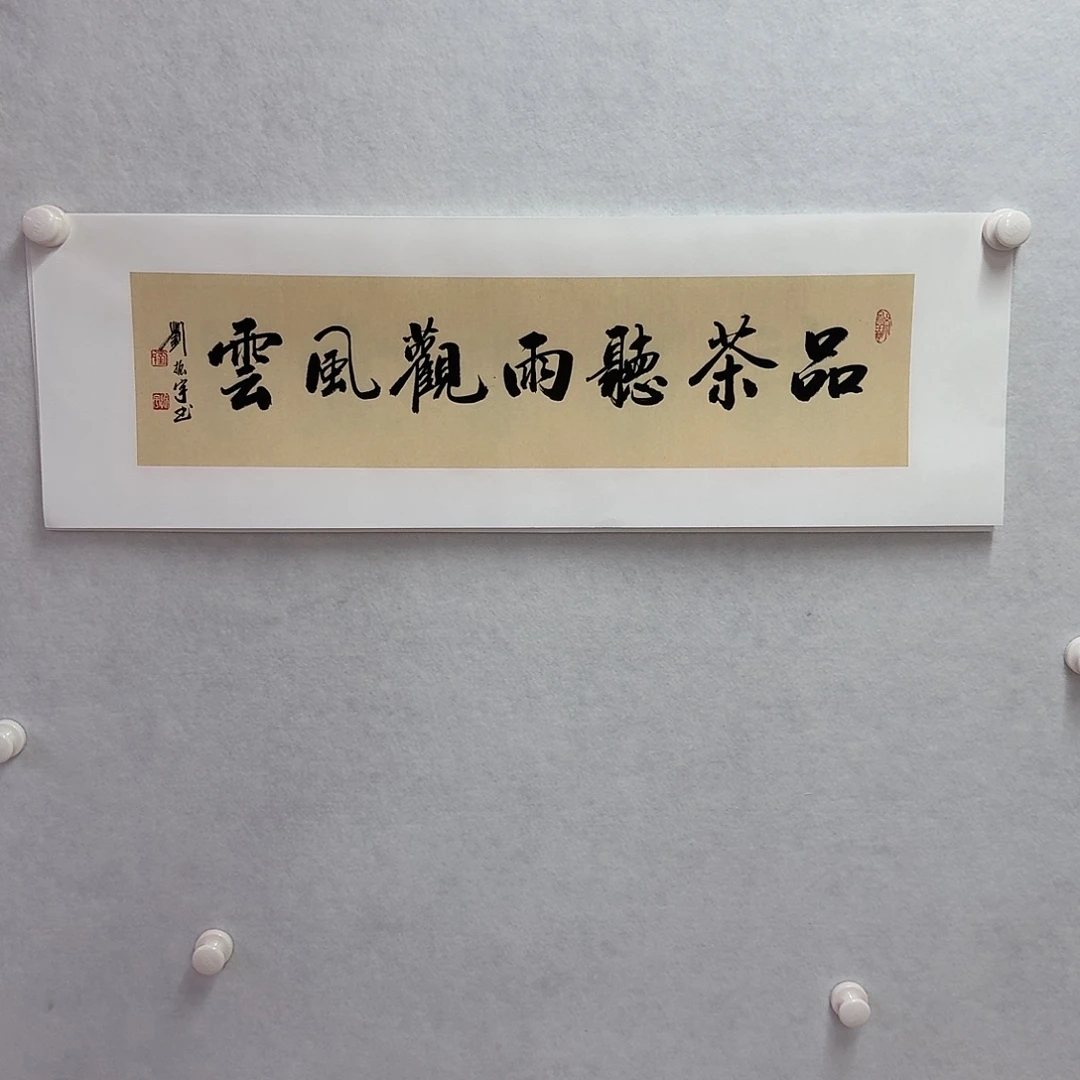 品茶聽雨觀風雲
劉振宇书